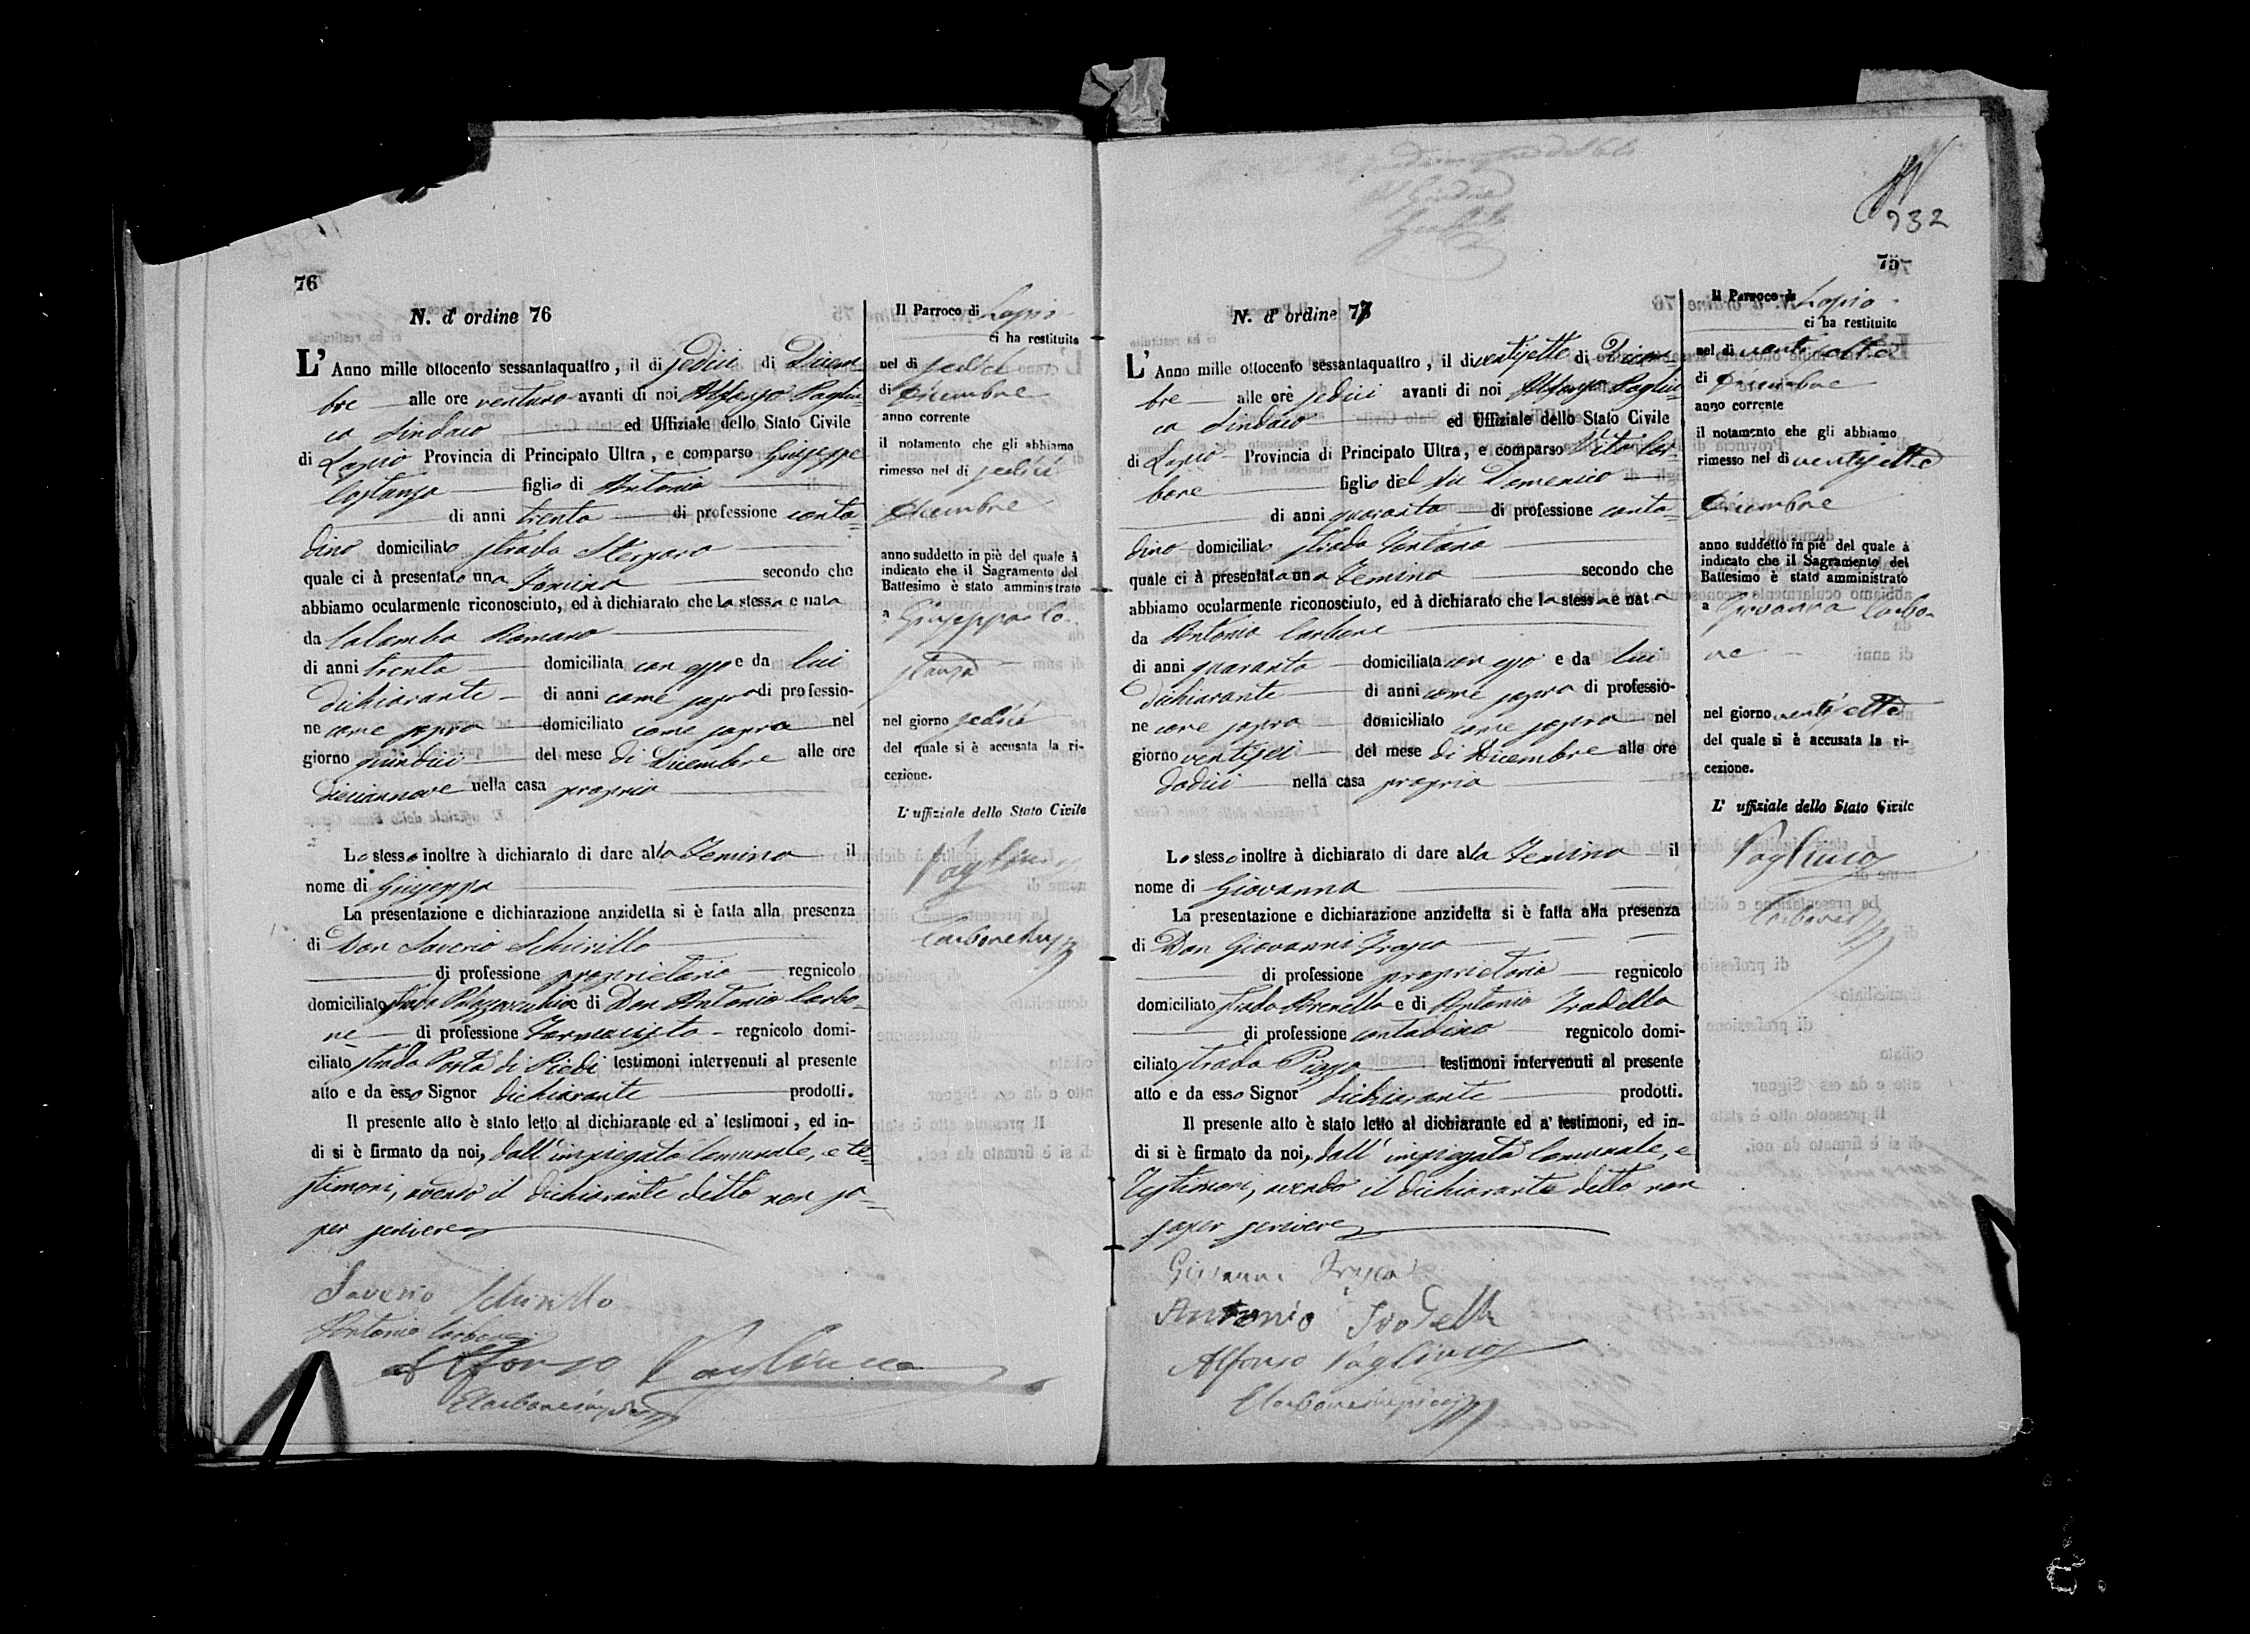 76
N. d' ordine 76
L'Anno mille ottocento sessantaquattro, il di sedici di Dicem-
bre alle ore ventuno avanti di noi Alfonso Pagliu-
ca Sindaco ed Uffiziale dello Stato Civile
di Lapio Provincia di Principato Ultra, e comparso Giuseppe
Costanzo figlio di Antonio
di anni trenta di professione conta-
dino domiciliato strada
quale ci à presentato una Femina secondo che
abbiamo ocularmente riconosciuto, ed à dichiarato che la stessa e nata
da Colomba Romano
di anni trenta domiciliata con esso e da lui
dichiarante di anni come sopra di professio-
ne come sopra domiciliato come sopra nel
giorno quindici del mese di Dicembre alle ore
diciannove nella casa propria
Lo stesso inoltre à dichiarato di dare alla Femina il
nome di Giuseppa
La presentazione e dichiarazione anzidetta si è fatta alla presenza
di Don Saverio Schirillo
di professione proprietario regnicolo
domiciliato strada e di Don Antonio Carbo-
ne di professione Farmacista regnicolo domi-
ciliato strada Porta di Piedi testimoni intervenuti al presente
atto e da esso Signor dichiarante prodotti.
Il presente atto è stato letto al dichiarante ed a' testimoni, ed in-
di si è firmato da noi, dall' impiegato Comunale, e te-
stimoni, avendo il dichiarante detto non sa-
per scrivere
Saverio Schirillo
Antonio Carbone
Alfonso Pagliuca
Il Parroco di Lapio
ci ha restituito
nel di sedici
di Dicembre
anno corrente
il notamento che gli abbiamo
rimesso nel di sedici
Dicembre
anno suddetto in piè del quale à
indicato che il Sagramento del
Battesimo è stato amministrato
a Giuseppa Co-
stanzo
nel giorno sedici
del quale si è accusata la ri-
cezione.
L' uffiziale dello Stato Civile
Pagliuca
932
75
N. d' ordine 77
L'Anno mille ottocento sessantaquattro, il di ventisette di Dicem-
bre alle ore sedici avanti di noi Alfonso Pagliu-
ca Sindaco ed Uffiziale dello Stato Civile
di Lapio Provincia di Principato Ultra, e comparso Vito Car-
bone figlio del fu Domenico
di anni quaranta di professione conta-
dino domiciliato strada Fontana
quale ci à presentata una Femina secondo che
abbiamo ocularmente riconosciuto, ed à dichiarato che la stessa e nata
da Antonia Carbone
di anni quaranta domiciliata con esso e da lui
dichiarante di anni come sopra di professio-
ne come sopra domiciliato come sopra nel
giorno ventisei del mese di Dicembre alle ore
dodici nella casa propria
Lo stesso inoltre à dichiarato di dare alla Femina il
nome di Giovanna
La presentazione e dichiarazione anzidetta si è fatta alla presenza
di Don Giovanni
di professione proprietario regnicolo
domiciliato strada e di Antonio
di professione contadino regnicolo domi-
ciliato strada Piazza testimoni intervenuti al presente
atto e da esso Signor dichiarante prodotti.
Il presente atto è stato letto al dichiarante ed a' testimoni, ed in-
di si è firmato da noi, dall' impiegato Comunale, e
Testimoni, avendo il dichiarante detto non
saper scrivere
Giovanni
Antonio
Alfonso Pagliuca
Il Parroco di Lapio
ci ha restituito
nel di ventisette
di Dicembre
anno corrente
il notamento che gli abbiamo
rimesso nel di ventisette
Dicembre
anno suddetto in piè del quale à
indicato che il Sagramento del
Battesimo è stato amministrato
a Giovanna Carbo-
ne
nel giorno ventisette
del quale si è accusata la ri-
cezione.
L' uffiziale dello Stato Civile
Pagliuca
Carbone